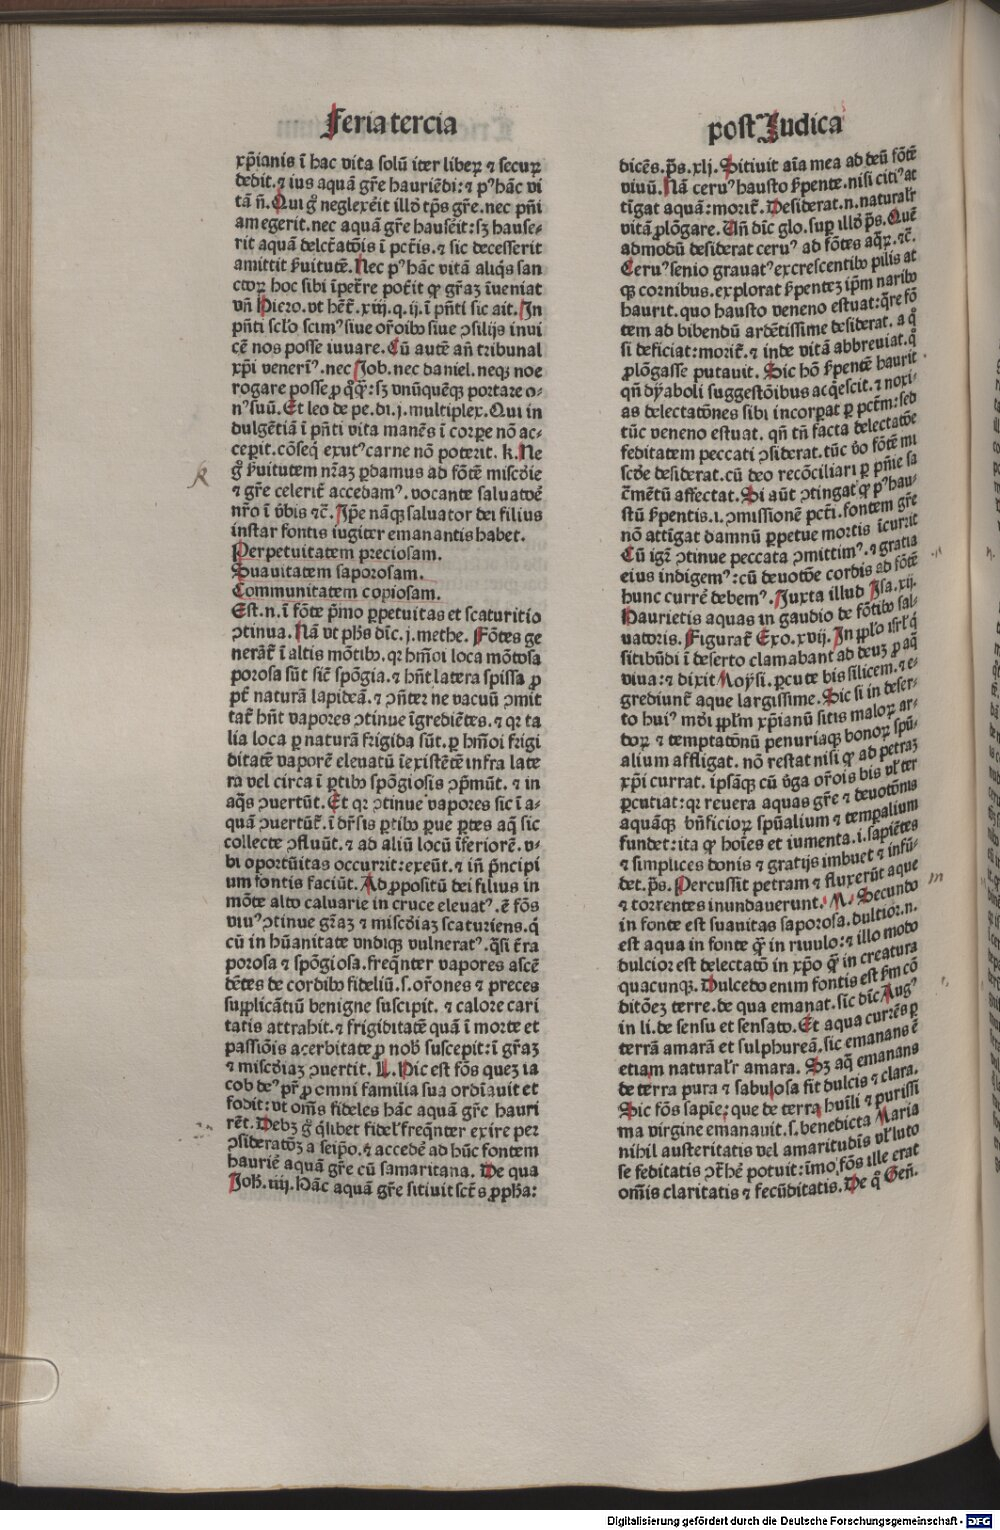 Feria tercia
xp̄ianis ī hac vita solū iter liberꝫ ⁊ securꝫ
dedit.⁊ ius aquā gr̄e hauriēdi:⁊ pꝰ hāc vi
tā n̄. Qui gͦ neglexēit illd̄ tp̄s gr̄e.nec pn̄i
am egerit.nec aquā gr̄e hauſēit:sꝫ hauſe-
rit aquā delc̄tatōis ī pct̄is.⁊ sic decesserit
amittit ẜuitutē. Nec pꝰ hāc vitā aliq̄s san
ctoꝝ hoc sibi īpet̄re pot̄it qͥ gr̄aꝫ īueniat
vn̄ Hiero.vt hēt̄.xiij.q.ij.ī pn̄ti sic ait. In
pn̄ti scl̄o scimꝰ siue or̄oibꝫ siue ꝯsilijs inui
cē nos posse iuuare. Cū autē an̄ tribunal
xp̄i venerīꝰ.nec Job.nec daniel.neqꝫ noe
rogare posse ꝓ qͦqͣꝫ:sꝫ vnūquēqꝫ portare o-
nꝰ suū. Et leo de pe.di.j.multiplex. Qui in
dulgētiā ī pn̄ti vita manēs ī corꝑe nō ac-
ceꝑit.cōseq̄ exutꝰ carne nō poterit. k. Ne
gͦ ẜuitutem nr̄aꝫ ꝑdamus ad fōtē misc̄die
⁊ gr̄e celerit̄ accedamꝰ.vocante saluatoē
nr̄o ī v̄bis ⁊c̄. Ip̄e nāqꝫ saluator dei filius
instar fontis iugiter emanantis habet.
k
Perpetuitatem preciosam.
Suauitatem saporosam.
Communitatem copiosam.
Est.n.ī fōte pͥmo ꝑpetuitas et scaturitio
ꝯtinua. Nā vt ph̄s dīc.j.methe. Fōtes ge
nerāt̄ ī altis mōtibꝫ.qꝛ hmōi loca mōtosa
porosa sūt sic̄ spōgia.⁊ hn̄t latera spissa ꝓ
pt̄ naturā lapideā.⁊ ꝯn̄ter ne vacuū ꝯmit
tat̄ hn̄t vapores ꝯtinue īgrediētes.⁊ qꝛ ta
lia loca ꝑ naturā frigida sūt.ꝑ hmōi frigi
ditatē vaporē eleuatū īexistētē infra late
ra vel circa ī ꝑtibꝫ spōgiosis ꝯpͥmūt.⁊ in
aq̄s ꝯuertūt. Et qꝛ ꝯtinue vapores sic ī a-
quā ꝯuertūt̄.ī dr̄sis ꝑtibꝫ ꝑue ꝑtes aq̄ sic
collecte ꝯfluūt.⁊ ad aliū locū īferiorē.v-
bi oportūitas occurrit:exeūt.⁊ in̄ pͥncipi
um fontis faciūt. Ad ꝓpositū dei filius in
mōte alto caluarie in cruce eleuatꝰ.ē fōs
viuꝰ ꝯtinue gr̄aꝫ ⁊ misc̄diaꝫ scaturiens.qͥ
cū in hūanitate vndiqꝫ vulneratꝰ.qͣsi t̄ra
porosa ⁊ spōgiosa.freqn̄ter vapores ascē
dētes de cordibꝫ fideliū.s.or̄ones ⁊ preces
supplicātiū benigne suscipit.⁊ calore cari
tatis attrahit.⁊ frigiditatē quā ī morte et
passiōis acerbitate ꝓ nob̄ suscepit:ī gr̄aꝫ
⁊ misc̄diaꝫ ꝯuertit. L. Hic est fōs queꝫ ia
cob deꝰ pr̄ ꝓ omni familia sua ordīauit et
fodit:vt om̄s fideles hāc aquā gr̄e hauri
rēt. Debꝫ gͦ qͥlibet fidel̄ freqn̄ter exire peꝛ
ꝯsideratōꝫ a seip̄o.⁊ accedē ad hūc fontem
haurīe aquā gr̄e cū samaritana. De qua
Joh̄.iiij. Hāc aquā gr̄e sitiuit sct̄s ꝓph̄a:
post Judica
dicēs.ps̄.xlj. Sitiuit aīa mea ad deū fōtē
viuū. Nā ceruꝰ hausto ẜpente.nisi citiꝰ at
tīgat aquā:morit̄. Desiderat.n.naturalr̄
vitā ꝓlōgare. Un̄ dīc glo.suꝑ illd̄ ps̄. Quē
admodū desiderat ceruꝰ ad fōtes aqꝝ.⁊c̄.
Ceruꝰ senio grauatꝰ excrescentibꝫ pilis at
qꝫ cornibus.explorat ẜpenteꝫ ip̄m naribꝫ
haurit.quo hausto veneno estuat:qͣre fō
tem ad bibendū ardētissime desiderat.a qͦ
si deficiat:morit̄.⁊ inde vitā abbreuiat.qͣ
ꝓlōgasse putauit. Sic hō ẜpentē haurit
qn̄ dyaboli suggestōibus acqͥescit.⁊ noxi-
as delectatōnes sibi incorꝑat ꝑ pct̄m:sed
tūc veneno estuat.qn̄ tn̄ facta delectatōe
feditatem peccati ꝯsiderat.tūc v̄o fōtē mi
sc̄die desiderat.cū deo recōciliari ꝑ pn̄ie sa
c̄mētū affectat. Si aūt ꝯtingat qͥ pꝰ hau-
stū ẜpentis.i.ꝯmissionē pct̄i.fontem gr̄e
nō attīgat damnū ꝑpetue mortis īcurrit
Cū igꝛ̄ ꝯtinue peccata ꝯmittimꝰ.⁊ gratia
eius indigemꝰ:cū deuotōe cordis ad fōtē
hunc currē debemꝰ. Juxta illud Isa.xij.
Haurietis aquas in gaudio de fōtibꝫ sal-
uatoris. Figurat̄ Exo.xvij. In ppl̄o isrl̄ qͥ
sitibūdi ī deserto clamabant ad deuꝫ ꝓ aq̄
viua:⁊ dixit Moysi.ꝑcute bis silicem.⁊ e-
grediunt̄ aque largissime. Sic si in deser-
to huiꝰ mūdi ppl̄m xp̄ianū sitis maloꝝ ar-
dor ⁊ temptatōnū penuriaqꝫ bonoꝝ spū-
alium affligat.nō restat nisi qͥ ad petraꝫ
xp̄i currat.ipsāqꝫ cū v̄ga or̄ois bis vl̄ ter
ꝑcutiat:qꝛ reuera aquas gr̄e ⁊ deuotōnis
aquāqꝫ bn̄ficioꝝ spūalium ⁊ tempꝑalium
fundet:ita qͥ hoīes et iumenta.i.sapiētes
⁊ simplices donis ⁊ gratijs imbuet ⁊ infū-
det.ps̄. Percussit petram ⁊ fluxerūt aque
⁊ torrentes inundauerunt. M. Secundo
m
in fonte est suauitas saporosa.dultior.n.
est aqua in fonte qͣꝫ in riuulo:⁊ illo modo
dulcior est delectatō in xp̄o qͣꝫ in creatura
quacunqꝫ. Dulcedo enim fontis est ẜm cō
ditōeꝫ terre.de qua emanat.sic dīc Augꝰ
in li.de sensu et sensato. Et aqua currēs ꝑ
terrā amarā et sulphureā.sic emanans ē
etiam naturalr̄ amara. Sꝫ aq̄ emanans
de terra pura ⁊ sabulosa fit dulcis ⁊ clara.
Sic fōs sapīe:que de terra hūili ⁊ purissi
ma virgine emanauit.s.benedicta Maria
nihil austeritatis vel amaritudīs vl̄ luto
se feditatis ꝯt̄hē potuit:īmo fōs ille erat
om̄is claritatis ⁊ fecūditatis. De qͦ Gen̄.
Digitalisierung gefördert durch die Deutsche Forschungsgemeinschaft - DFG